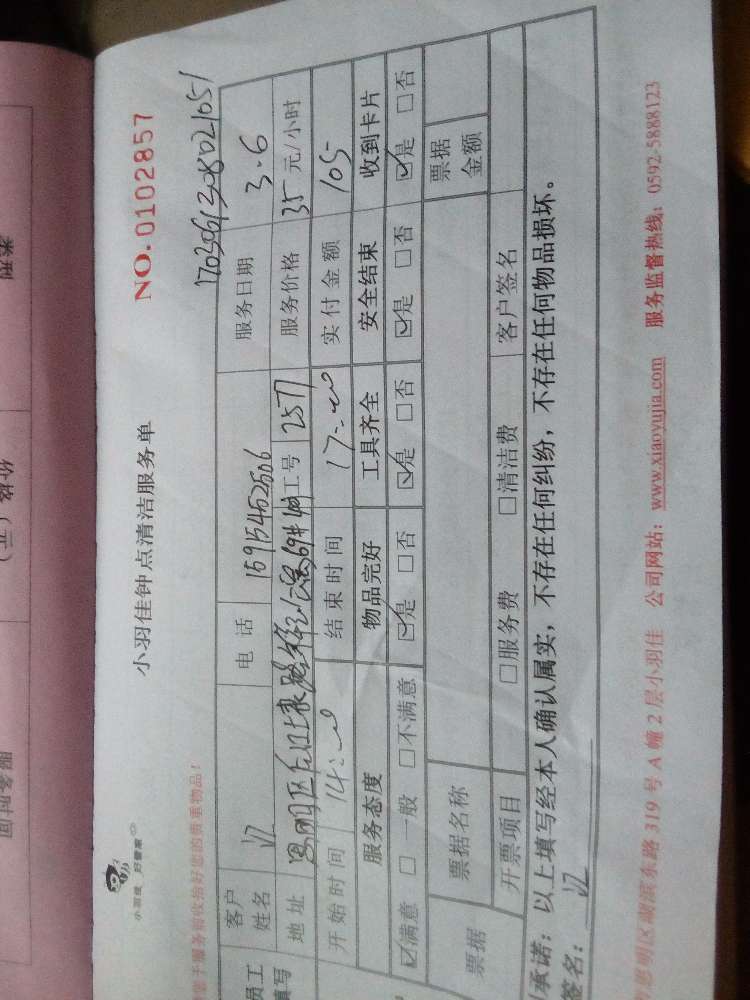 小羽佳 好管家
小羽佳钟点清洁服务单
NO. 0102857
于服务前收拾好您的贵重物品！
17030613080221051
员工
填写
客户
姓名
电 话
服务日期
3.6
地 址
工号
2577
服务价格
35 元/小时
开 始 时 间
14:00
结 束 时 间
17:00
实 付 金 额
105
服务态度
物品完好
工具齐全
安全结束
收到卡片
☑满意 □一般 □不满意
☑是 □否
☑是 □否
☑是 □否
☑是 □否
票据
票据名称
票据
金额
开票项目
□服务费
□清洁费
客户签名
承诺：以上填写经本人确认属实，不存在任何纠纷，不存在任何物品损坏。
签名：
思明区湖滨东路 319 号 A 幢 2 层小羽佳 公司网站：www.xiaoyujia.com 服务监督热线：0592-5888123
类型
价格（元）
服务时间